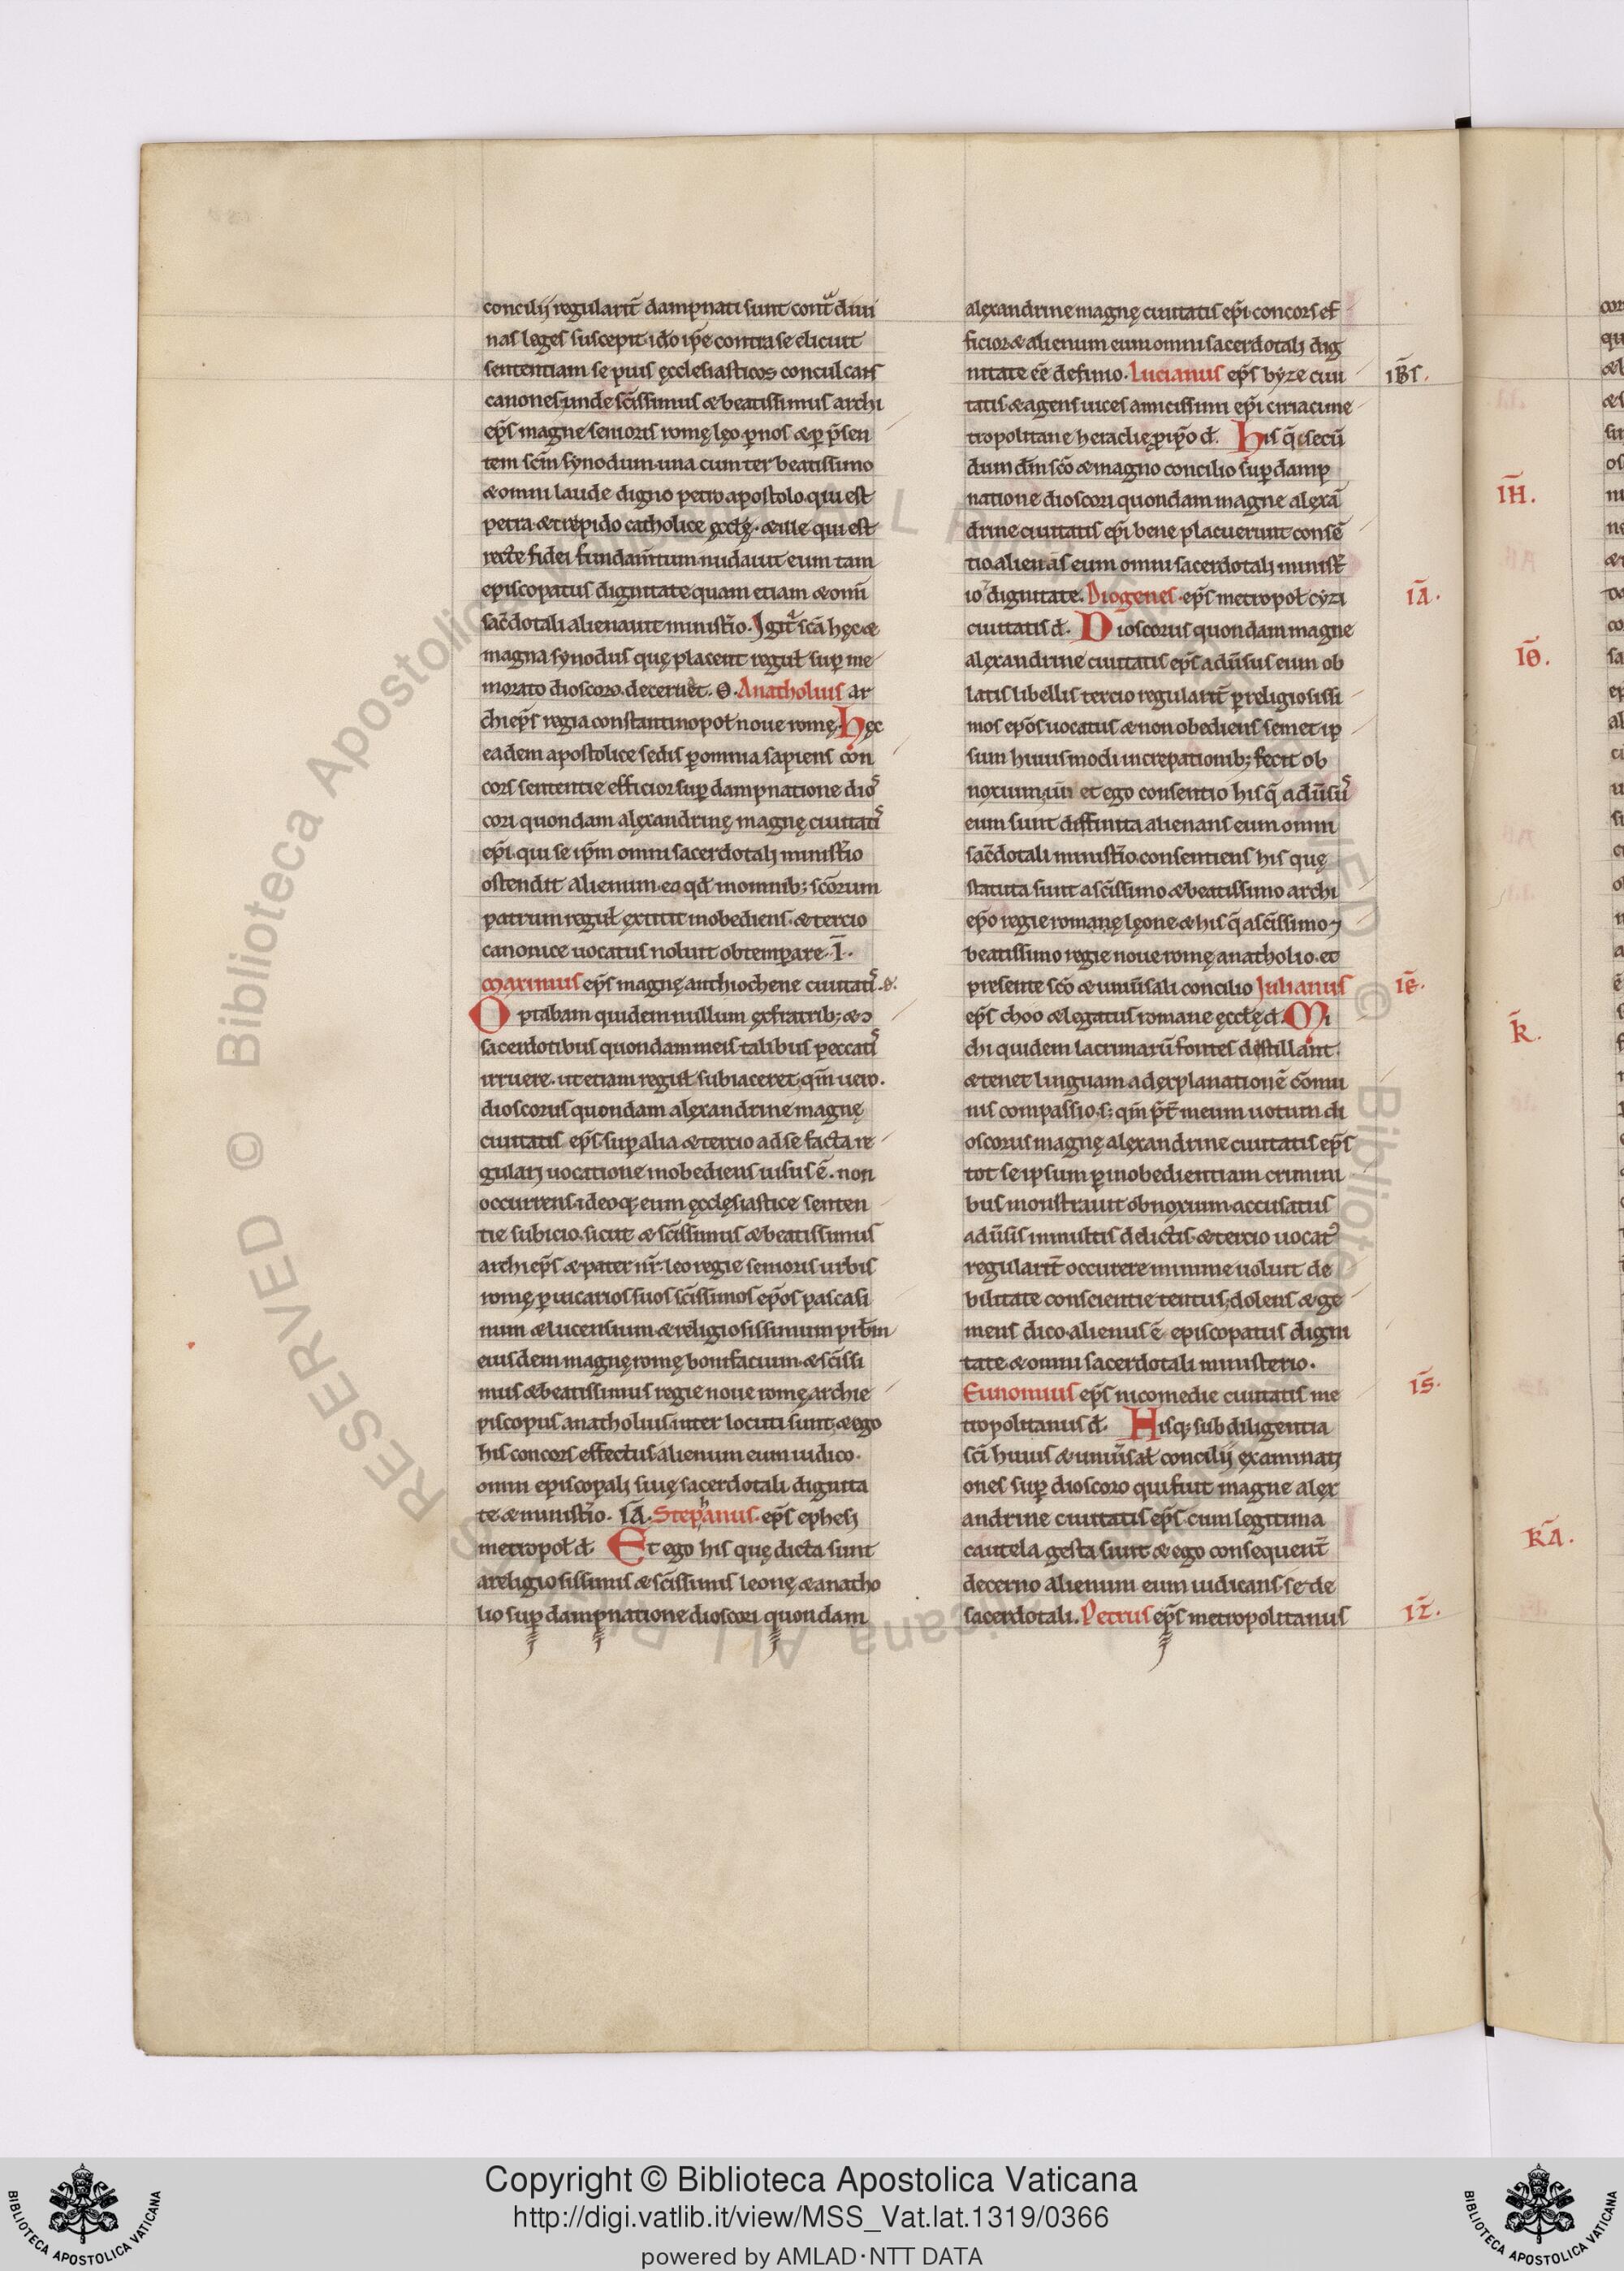 concilij regularit̄ dampnati sunt contͣ diui
nas leges suscepit ido ip̄e contra se elicuit
sententiam se puis ęcclesiasticos conculcans
canones unde sc̄issimus & beatissimus archi
ep̄s magne senioris romę lęo ꝑ nos & ꝑ p̄sen
tem sc̄m synodum una cum ter beatissimo
& omni laude digno petro apostolo qui est
petra & trepido catholice ęcclę̄. & ille qui est
recte fidei fundam̄tum nudauit eum tam
episcopatus dignitate quam etiam & om̄i
sac̄dotali alienauit minist̄io. Igit͛ sc̄a hęc &
magna synodus quę placent regul̄ suꝑ me
morato dioscoro decernet. Θ. Anatholius ar
chiep̄s regia constantinopol̄ noue romę. Hęc
eadem apostolice sedis ꝑ omnia sapiens con
cors sententie efficior suꝑ dampnatione dios
cori quondam alęxandrinę magnę ciuitatis
ep̄i. qui se ip̄m omni sacerdotali minist̄io
ostendit alienum. eo qd̄ in omnib; sc̄orum
patrum regul̄ ęxtitit inobediens. & tercio
canonice uocatus noluit obtemꝑare. Ī.
Maximus ep̄s magnę anthiochene ciuitatis .d̄.
Optabam quidem nullum ęx fratrib; & ɔ
sacerdotibus quondam meis talibus peccatis
irruere. ut etiam regul̄ subiaceret, qm̄ uero.
dioscorus quondam alęxandrine magnę
ciuitatis ep̄s. suꝑ alia & tercio ad se facta re
gulari uocatione inobediens uisus ē. non
occurrens. ideoq; eum ęcclęsiastice senten
tie subicio. sicut & sc̄issimus & beatissimus
archiep̄s & pater nr̄. leo regie senioris urbis
romę ꝑ uicarios suos sc̄issimos ep̄os pascasi
num & lucensium & religiosissimum prb̄m
eiusdem magnę romę bonifacium & sc̄issi
mus & beatissimus regie noue romę archie
piscopus anatholius inter locuti sunt & ego
his concors effectus alienum eum iudico.
omni episcopali siuę sacerdotali dignita
te & minist̄io. ĪĀ. Stephanus. ep̄s ephesi
metropol̄ d̄. Et ego his quę dicta sunt
a religiosissimis & sc̄issimis leonę & anatho
lio suꝑ dampnatione dioscori quondam
alęxandrine magnę ciuitatis ep̄i. concors ef
ficior & alienum eum omni sacerdotali dig
nitate eē defimo. Lucianus ep̄s byze ciui
IB̄S.
tatis & agens uices amicissimi ep̄i ciriaci me
tropolitane heraclię ꝑ ip̄o d̄. His q̄ secū
dum dm̄ sc̄o & magno concilio suꝑ damp
natione dioscori quondam magne alęxā
drine ciuitatis ep̄i bene placuerunt consē
tio. alienās eum omni sacerdotali minist̄
io dignitate. Diogenes. ep̄s metropol̄ cyzi
ĪĀ.
ciuitatis d̄. Dioscorus quondam magne
alęxandrine ciuitatis ep̄s adū̄sus eum ob
latis libellis tercio regularit̄ ꝑ religiosissi
mos ep̄os uocatus & non obediens semet ip
sum huiusmodi increpationib; fecit ob
noxium, et ego consentio his q̄ adū̄sus
eum sunt diffinita alienans eum omni
sac̄dotali minist̄io. consentiens his quę
statuta sunt a sc̄issimo & beatissimo archi
ep̄o regie romanę lęone & his q̄ a sc̄issimo ⁊
beatissimo regie noue romę anatholio. et
presente sc̄o & uniū̄sali concilio Julianus
ĪĒ.
ep̄s choo & legatus romane ęcclę̄ d̄. Mi
chi quidem lacrimarū fontes destillant.
& tenet linguam ad ęxplanationē cōmu
nis compassio. s; qm̄ p̄t̄ meum uotum di
oscorus magnę alęxandrine ciuitatis ep̄s
tot se ipsum ꝑ inobedientiam crimini
bus monstrauit obnoxium. accusatus
adū̄sis in multis delictis. & tercio uocat᷒
regularit̄ occurere minime uoluit de
bilitate conscientie tentus. dolens & ge
mens dico. alienus ē episcopatus digni
tate & omni sacerdotali ministerio.
Eunomius ep̄s nicomedie ciuitatis me
ĪS̄.
tropolitanus d̄. Hisq; sub diligentia
sc̄i huius & uniū̄sal̄ concilij ęxaminati
ones suꝑ dioscoro qui fuit magne alex
andrine ciuitatis ep̄s. cum legitima
cautela gesta sunt & ego consequent̄
decerno alienum eum iudicans se de
sacerdotali. Petrus ep̄s metropolitanus
ĪZ̄.
ĪH̄.
ĪΘ̄.
K̄.
K̄Ā.
Copyright © Biblioteca Apostolica Vaticana
http://digi.vatlib.it/view/MSS_Vat.lat.1319/0366
powered by AMLAD·NTT DATA